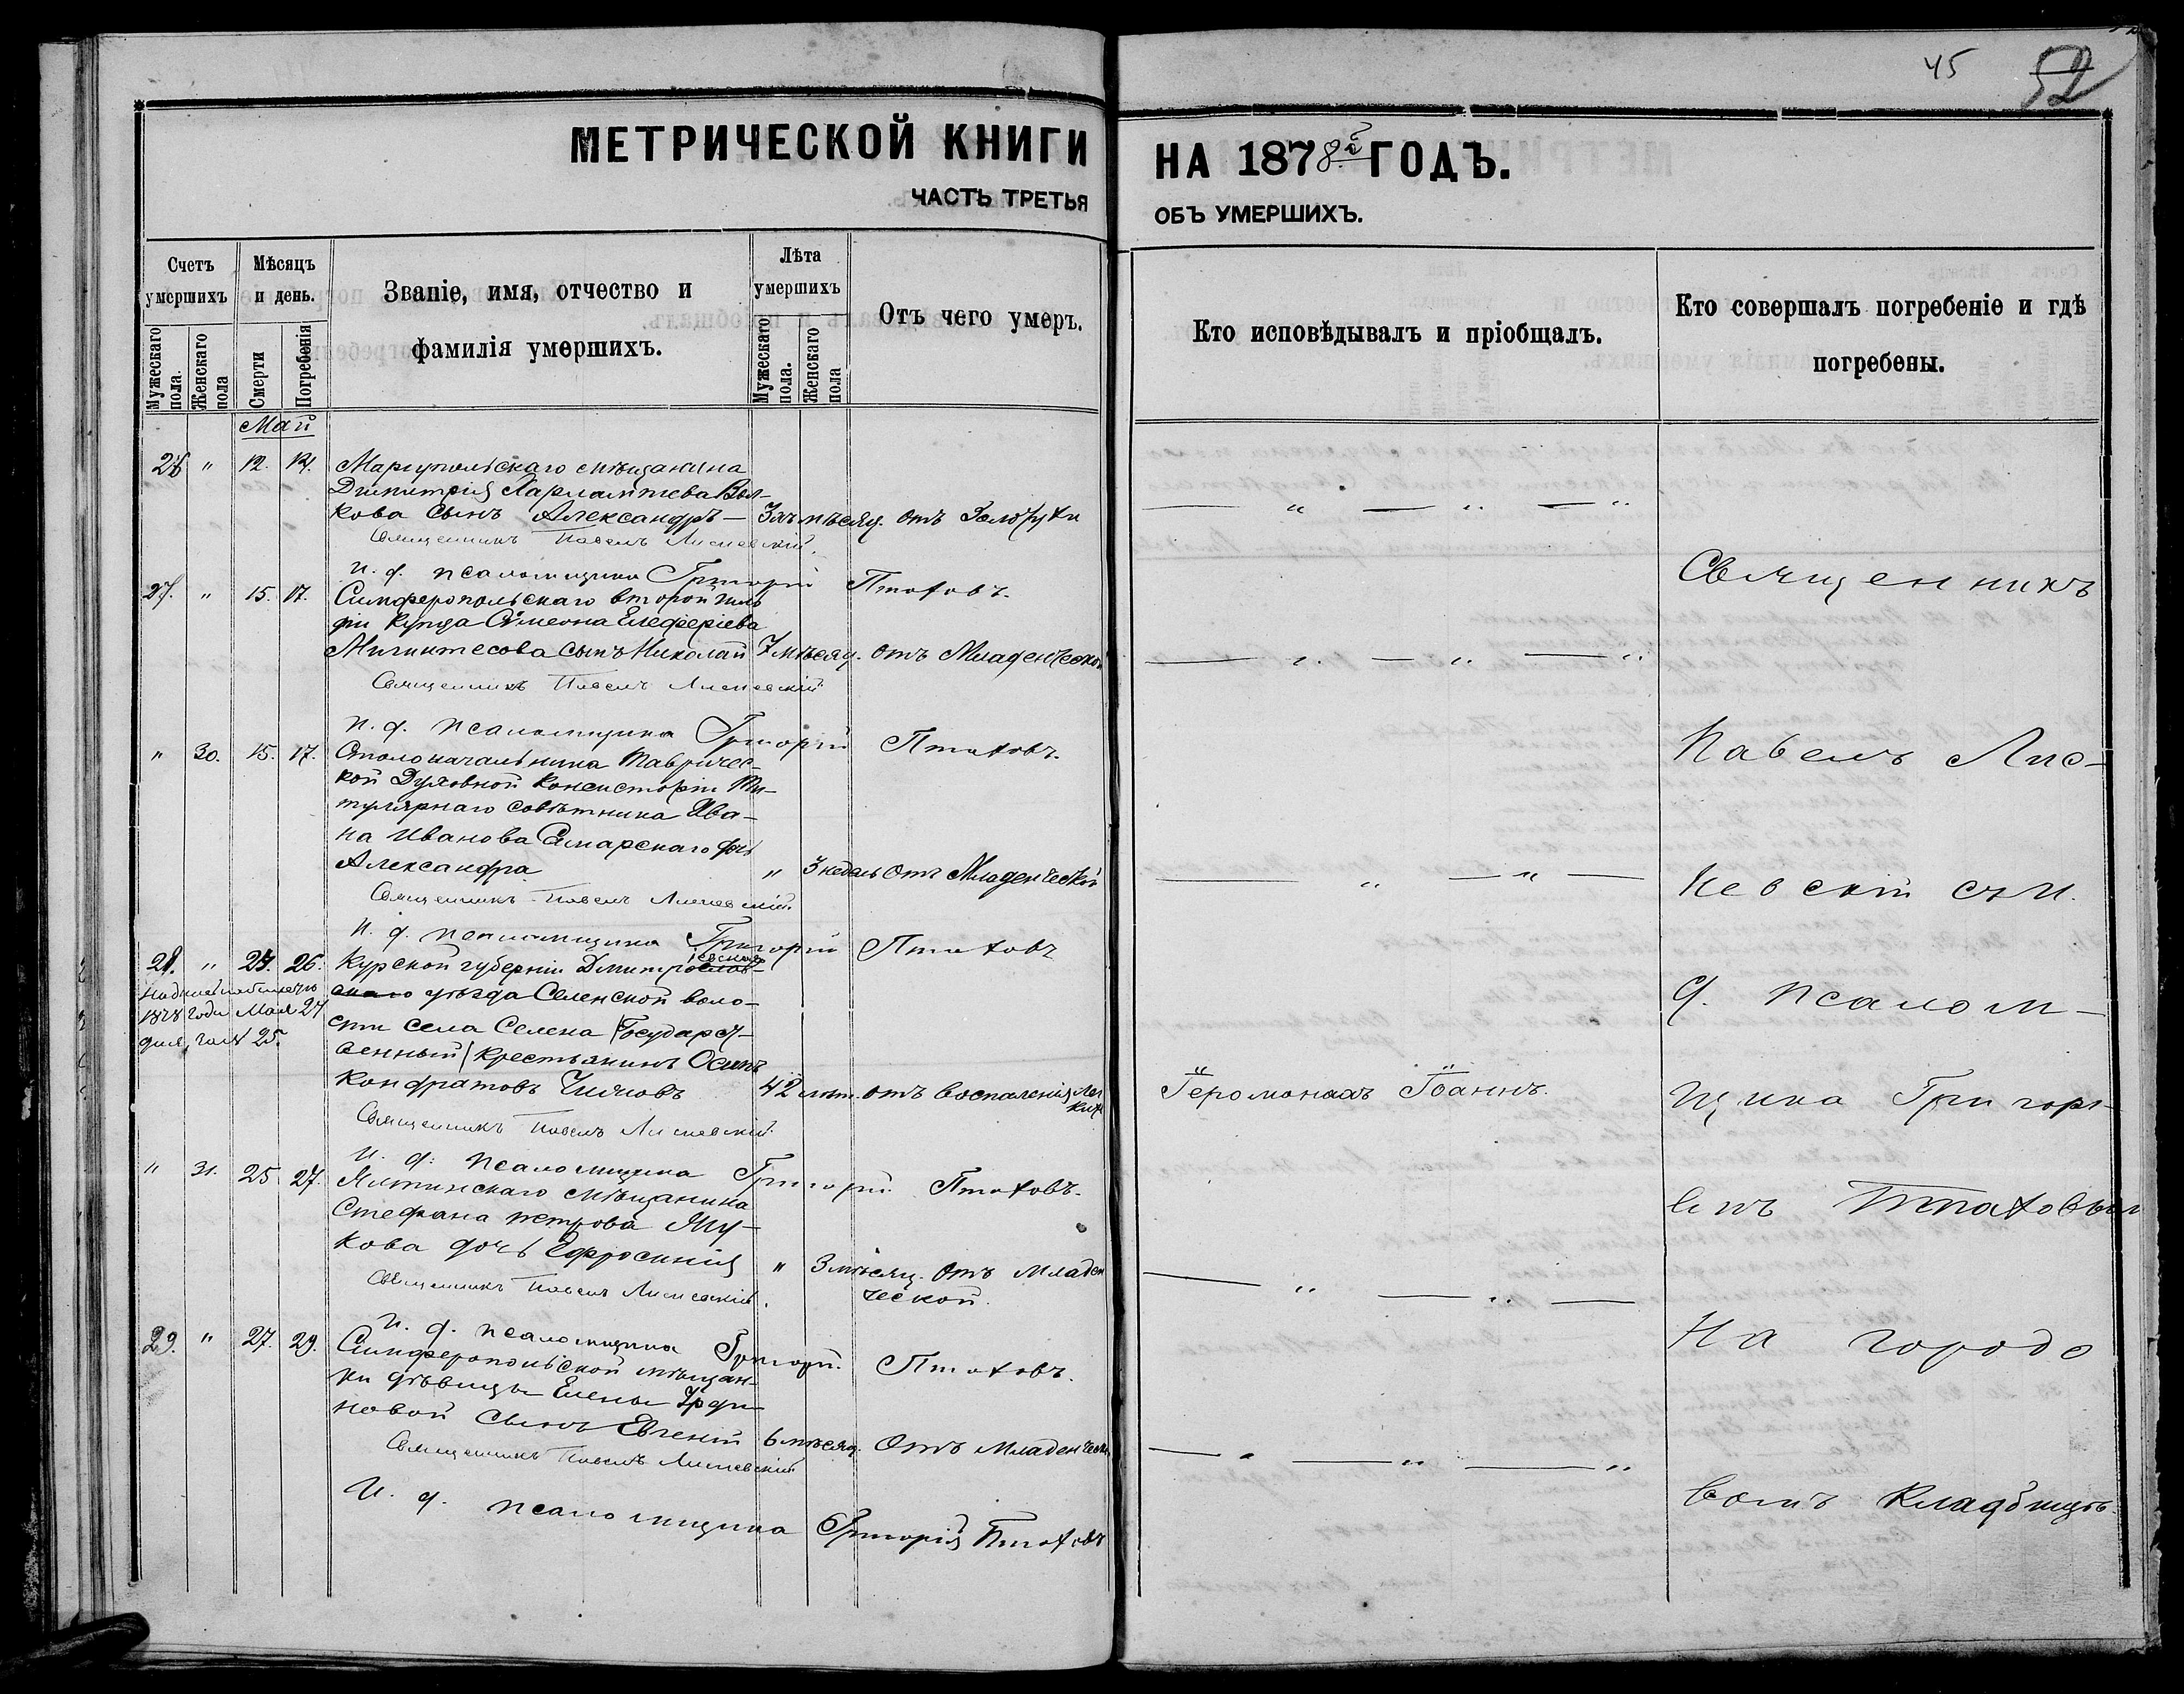 45 52
МЕТРИЧЕСКОЙ КНИГИ НА 1878й ГОДЪ.
ЧАСТЬ ТРЕТЬЯ ОБЪ УМЕРШИХЪ.
Счетъ умершихъ
Мужескаго пола.
Женскаго пола
Мѣсяцъ и день.
Смерти
Погребенія
Званіе, имя, отчество и
фамилія умершихъ.
Лѣта умершихъ
Мужескаго пола.
Женскаго пола
Отъ чего умеръ.
Кто исповѣдывалъ и пріобщалъ.
Кто совершалъ погребеніе и гдѣ
погребены.
Май
26 " 12. 14. Маріупольскаго мѣщанина
Димитрія Харлампіева
кова сынъ Александръ — мѣсяц. отъ Золотухи
Священникъ Павелъ Лисневскій.
И. д. псаломщика Григорій Птаховъ.
27. " 15. 17. Симферопольскаго второй гиль
діи купца Симеона Елеферіева
сынъ Николай 7 мѣсяц. отъ Младенческой
Священникъ Павелъ Лисневскій
И. д. псаломщика Григорій Птаховъ.
" 30. 15. 17. Столоначальника Тавричес-
кой Духовной Консисторіи Ти-
тулярнаго совѣтника Ива-
на Иванова Самарскаго дочь
Александра " 3 недель отъ Младенческой
Священникъ Павелъ Лисневскій.
И. д. псаломщика Григорій Птаховъ
28. " 24. 26. Курской губерніи Дмитрослов-
ескаго
скаго уѣзда Селенской воло-
1878 года Мая 24
сти села Селена /Государст-
дня, 25.
венный/ крестьянинъ Осипъ
Кондратовъ 42 лѣт. отъ воспаленія лег
кихъ
Священникъ Павелъ Лисневскій.
И. д. псаломщика Григорій Птаховъ.
" 31. 25 27. Ялтинскаго мѣщанина
Стефана Петрова
кова дочь Ефросинія " 3 мѣсяц. отъ Младен
ческой.
Священникъ Павелъ Лисневскій.
И. д. псаломщика Григорій Птаховъ.
29. " 27. 29. Симферопольской мѣщан-
ки дѣвицы Елены
новой сынъ Евгеній 6 мѣсяц. отъ младенческ
Священникъ Павелъ Лисневскій
И. д. псаломщика Григорій Птаховъ
— " — " — "
— " — " — "
— " — " —
Іеромонахъ Іоаннъ.
— " — " —
— " — " — "
Священникъ
Павелъ Лис-
невскій съ И.
д. псалом-
щика Григорі-
емъ Птаховым
На городо
вомъ кладбищѣ.